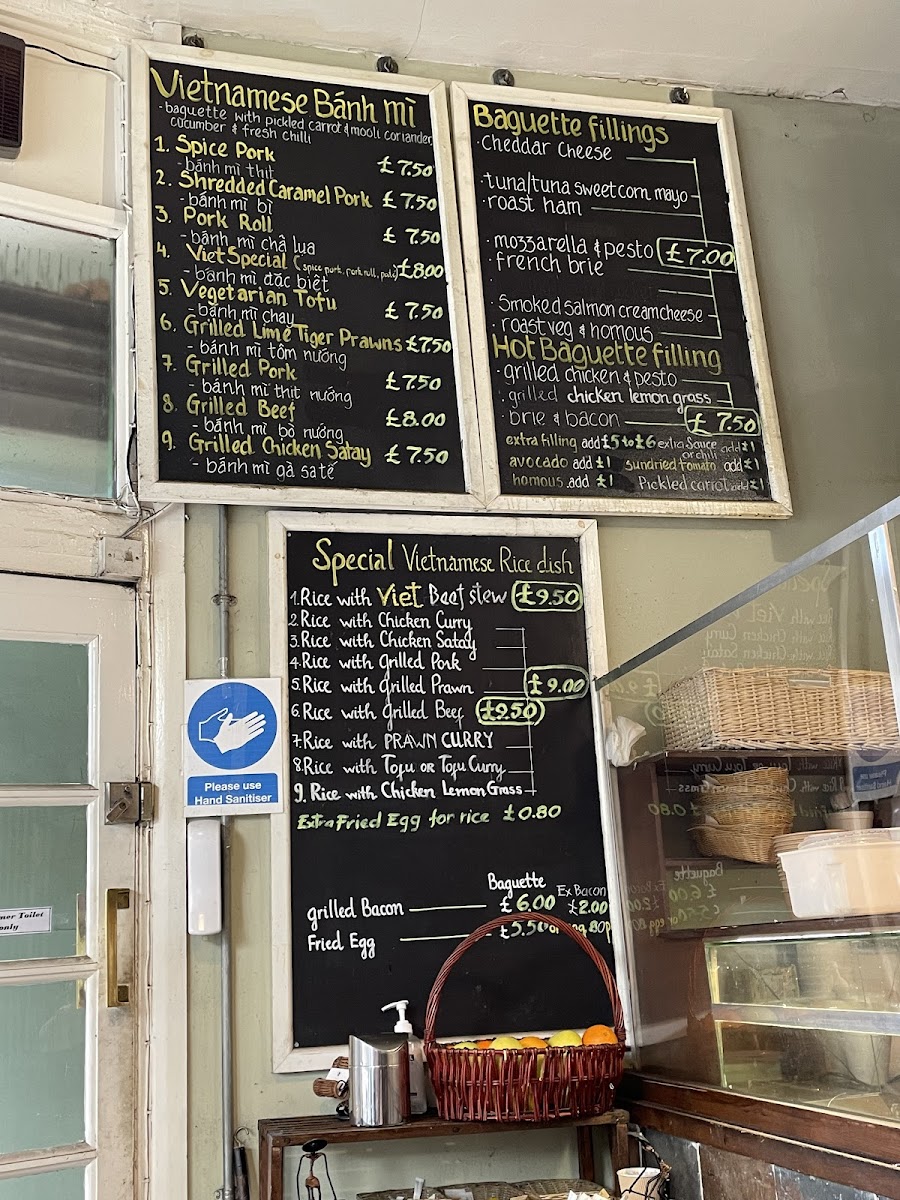 Vietnamese Bánh mì
- baguette with pickled carrot & mooli coriander
cucumber & fresh chilli
1. Spice Pork £7.50
- bánh mì thịt
2. Shredded Caramel Pork £7.50
- bánh mì bì
3. Pork Roll £7.50
- bánh mì chả lụa
4. Viet Special (spice pork, pork roll, pate) £8.00
- bánh mì đặc biệt
5. Vegetarian Tofu £7.50
- bánh mì chay
6. Grilled Lime Tiger Prawns £7.50
- bánh mì tôm nướng
7. Grilled Pork £7.50
- bánh mì thịt nướng
8. Grilled Beef £8.00
- bánh mì bò nướng
9. Grilled Chicken Satay £7.50
- bánh mì gà sa tế
Baguette fillings
· Cheddar Cheese
· tuna/tuna sweetcorn mayo
· roast ham
· mozzarella & pesto £7.00
· french brie
· Smoked salmon creamcheese
· roast veg & homous
Hot Baguette filling
· grilled chicken & pesto
· grilled chicken lemon grass
· brie & bacon £7.50
extra filling add £5 to £6 extra Sauce or chilli add £1
avocado add £1 sundried tomato add £1
homous add £1 Pickled carrot add £1
Special Vietnamese Rice dish
1. Rice with Viet Beef stew £9.50
2. Rice with Chicken Curry
3. Rice with Chicken Satay
4. Rice with Grilled Pork
5. Rice with Grilled Prawn £9.00
6. Rice with Grilled Beef £9.50
7. Rice with PRAWN CURRY
8. Rice with Tofu OR Tofu Curry
9. Rice with Chicken Lemon Grass
Extra Fried Egg for rice £0.80
Baguette Ex Bacon
grilled Bacon £6.00 £2.00
Fried Egg £5.50 80p
Please use
Hand Sanitiser
Toilet
only